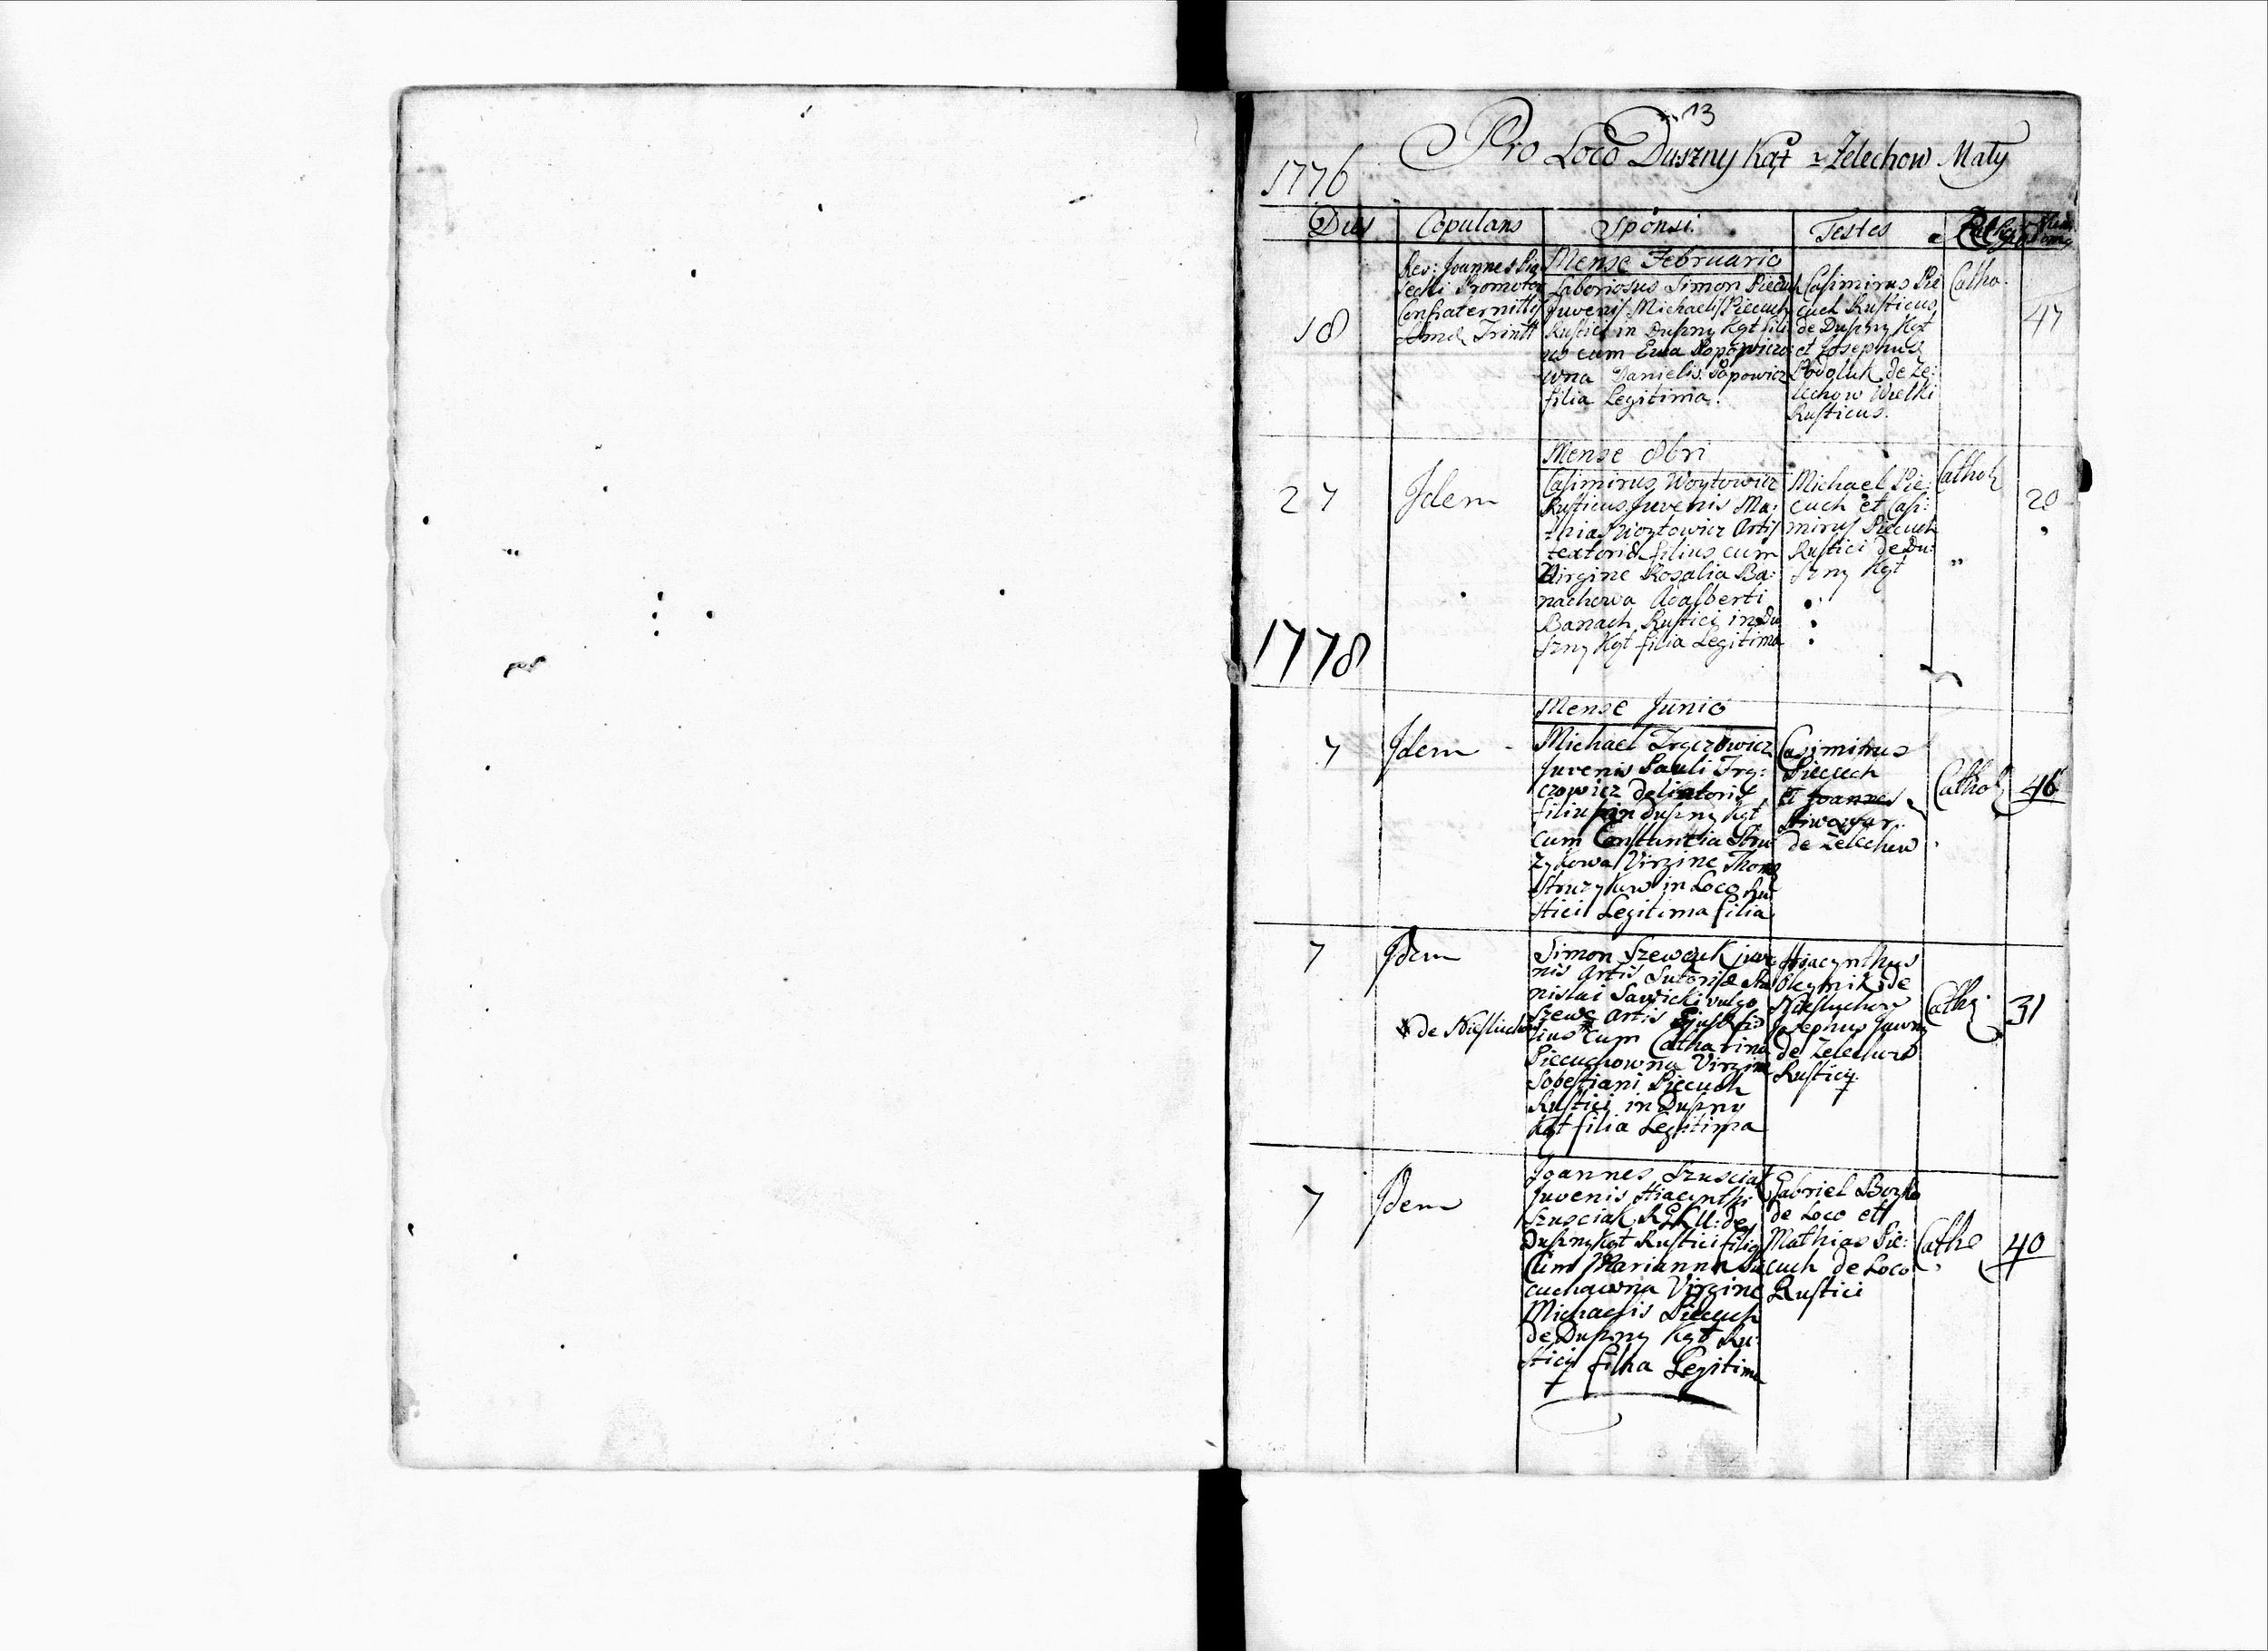 13
Pro Loco Duszny Kąt z Zelechow Maly
1776
Dies Copulans Sponsi Testes
Mense Februario
18
Rev: Joannes Pia
secki Promotor
Confraternittis
Trintt
Laboriosus Simon Piecuch
Juvenis Michaelis Piecuch
Rustici in Duszny Kąt fili
us cum Ewa Popowiczo
wna Danielis Popowicz
filia Legitima.
Casimirus Pie
cuch Rusticus
de Duszny Kąt
et Josephus
Podoluk de Ze:
lechow Wielki
Rusticus.
Catho.
47
Mense 8bri
27
Idem
Casimirus Woytowicz
Rusticus Juvenis Ma:
thia Woytowicz Artis
textoriæ filius cum
Virgine Rosalia Ba:
nachowa Adalberti
Banach Rustici in Du
szny Kąt filia Legitima
Michael Pie:
cuch et Casi:
mirus Piecuch
Rustici de Du:
szny Kąt
Cathol
20
1778
Mense Junio
7
Idem
Michael
Juvenis Pauli
filius in Duszny Kąt
cum Constantia Stru
zykowa Virgine Thoma
Struzykow in Loco Ru
stici Legitima filia
Casimirus
Piecuch
et Joannes
Piwowar
de Zelechow
Cathol
46
7
Idem
de Niesluchow
Simon Szewczuk juve
nis Artis Sutoriæ Sta
nislai Sawicki vulgo
Szewc Artis Ejusd fi
lius Cum Catharina
Piecuchowna Virgine
Sobestiani Piecuch
Rustici in Duszny
Kąt filia Legitima
Hiacynthus
Oleynik de
Niesluchow
Josephus
de Zelechow
Rustici
Cathol
31
7
Idem
Joannes Szusciak
Juvenis Hiacynthi
Szusciak de
Duszny Kąt Rustici filius
Cum Marianna Pie
cuchowna Virgine
Michaelis Piecuch
de Duszny Kąt Ru:
stici filia Legitima
Gabriel
de Loco et
Mathias Pie:
cuch de Loco
Rustici
Catho
40